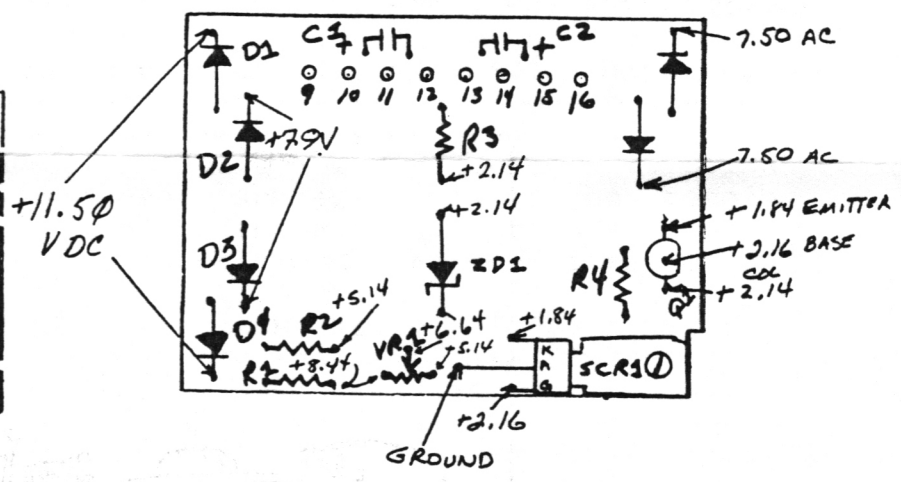 C1 + + C2
D1
7.50 AC
9 10 11 12 13 14 15 16
+7.9V
R3
D2
+2.14
7.50 AC
+11.50
VDC
+2.14
+1.84 EMITTER
+2.16 BASE
COL
+2.14
D3
ZD1
R4
Q1
+5.14
D4
R2
+6.64
+1.84
VR1
+5.14
R1
+8.44
K
A
G
SCR1 1
+2.16
GROUND